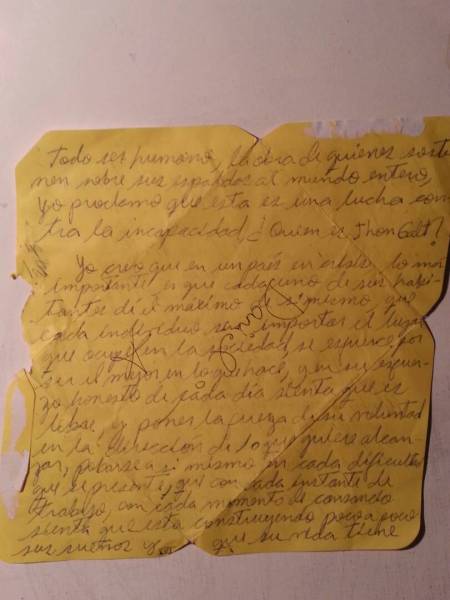 Todo ser humano, la obra de quienes soste
nen sobre sus espaldas al mundo entero,
yo proclamo que esta es una lucha con
tra la incapacidad, ¿Quien es Jhon Galt?
Yo creo que en un país en crisis lo mas
importante es que cada uno de sus habi-
tantes dé el máximo de si mismo, que
cada individuo sin importar el lugar
que ocupe en la sociedad, se esfuerce por
ser el mejor en lo que hace, y en su esfuer-
zo honesto de cada día sienta que es
libre, y poner la fuerza de su voluntad
en la dirección de lo que quiere alcan-
zar, a si mismo en cada dificultad
que se presente, que con cada instante de
trabajo, con cada momento de cansancio
sienta que esta construyendo poco a poco
sus sueños y que su vida tiene